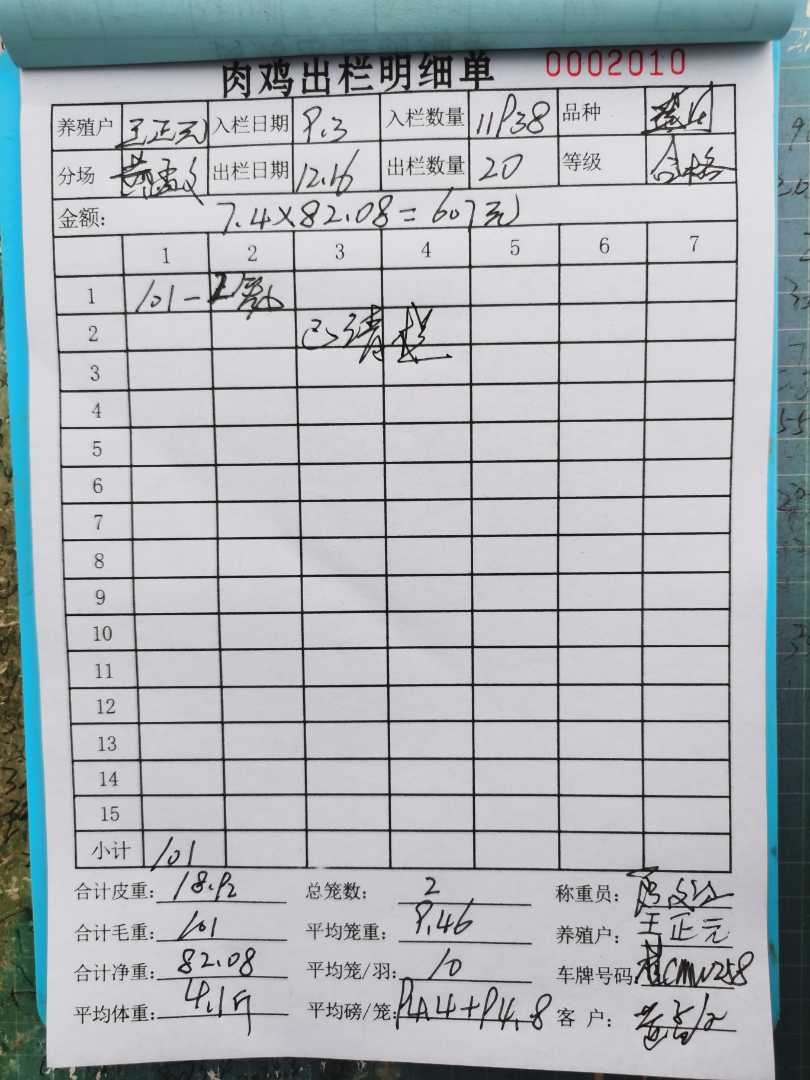 肉鸡出栏明细单 0002010
养殖户 王正元 入栏日期 9.3 入栏数量 11938 品种
分场 出栏日期 12.16 出栏数量 20 等级 合格
金额: 7.4×82.08=607元
1 2 3 4 5 6 7
1 101-2
2 已
3
4
5
6
7
8
9
10
11
12
13
14
15
小计 101
合计皮重: 18.92 总笼数: 2 称重员:
合计毛重: 101 平均笼重: 9.46 养殖户: 王正元
合计净重: 82.08 平均笼/羽: 10 车牌号码
平均体重: 4.1斤 平均磅/笼: 客 户: